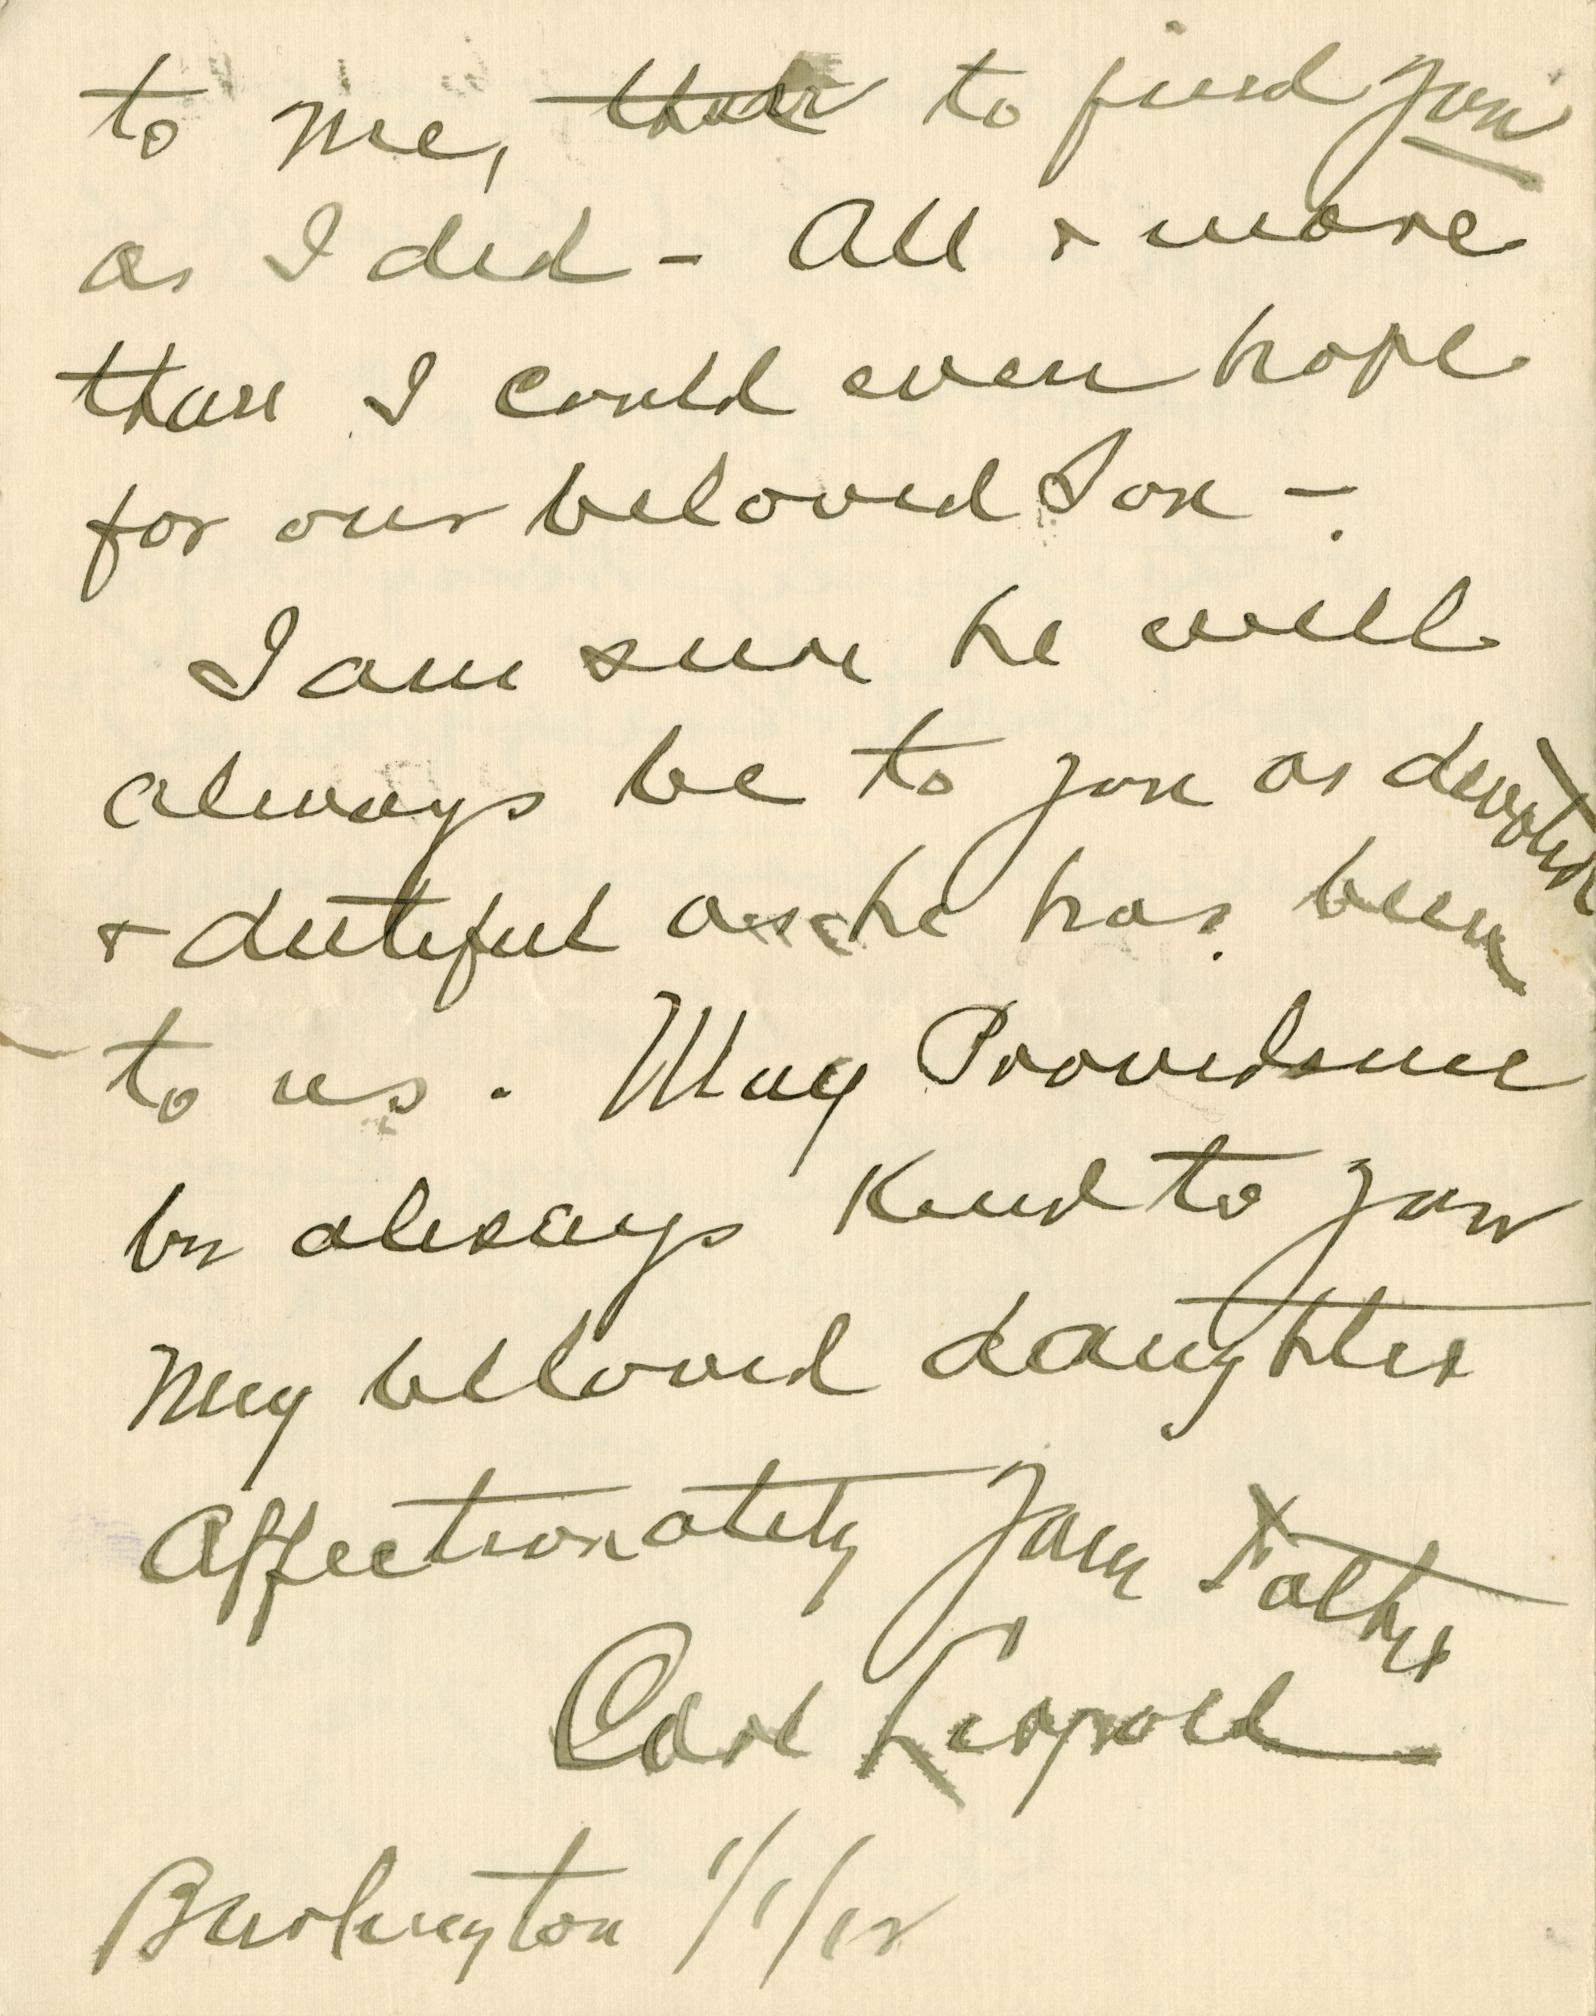 to me, than to find you
as I did - All & more
than I could even hope
for our beloved Son -.
I am sure he will
always be to you as devoted
& dutiful as he has been
to us. May Providence
be always Kind to you
My beloved daughter
Affectionately Your Father
Carl Leopold
Burlington 1/1/12